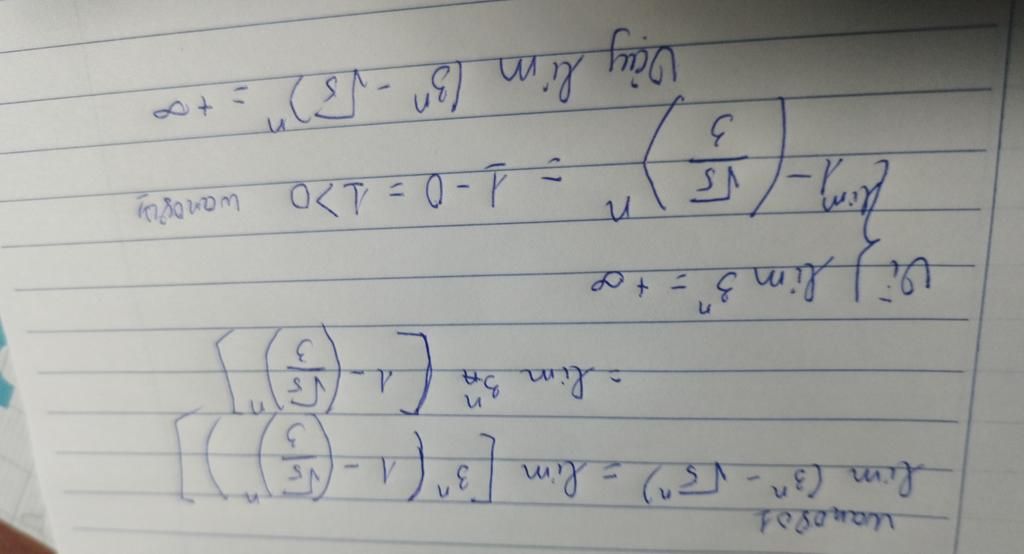 wan0851
lim (3ⁿ - √5ⁿ) = lim [3ⁿ (1 - (√5/3)ⁿ)]
= lim 3ⁿ [1 - (√5/3)ⁿ]
Vì { lim 3ⁿ = + ∞
lim 1 - (√5/3)ⁿ = 1 - 0 = 1 > 0
Vậy lim (3ⁿ - √5)ⁿ = + ∞